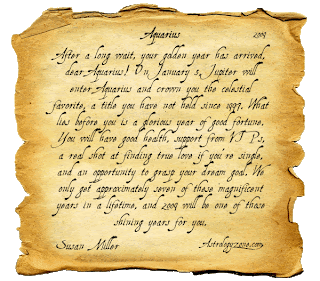 Aquarius 2009
After a long wait, your golden year has arrived,
dear Aquarius! On January 5, Jupiter will
enter Aquarius and crown you the celestial
favorite, a title you have not held since 1997. What
lies before you is a glorious year of good fortune.
You will have good health, support from VIPs,
a real shot at finding true love if you're single,
and an opportunity to grasp your dream goal. We
only get approximately seven of these magnificent
years in a lifetime, and 2009 will be one of those
shining years for you.
Susan Miller Astrologyzone.com